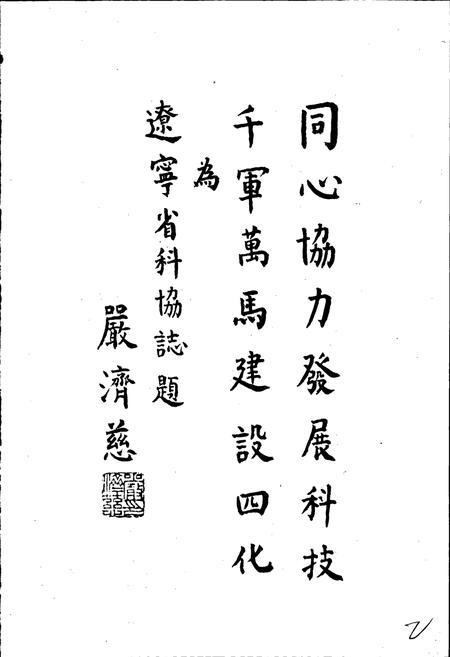 同心協力發展科技
千軍萬馬建設四化
為
遼寧省科協誌題
嚴濟慈